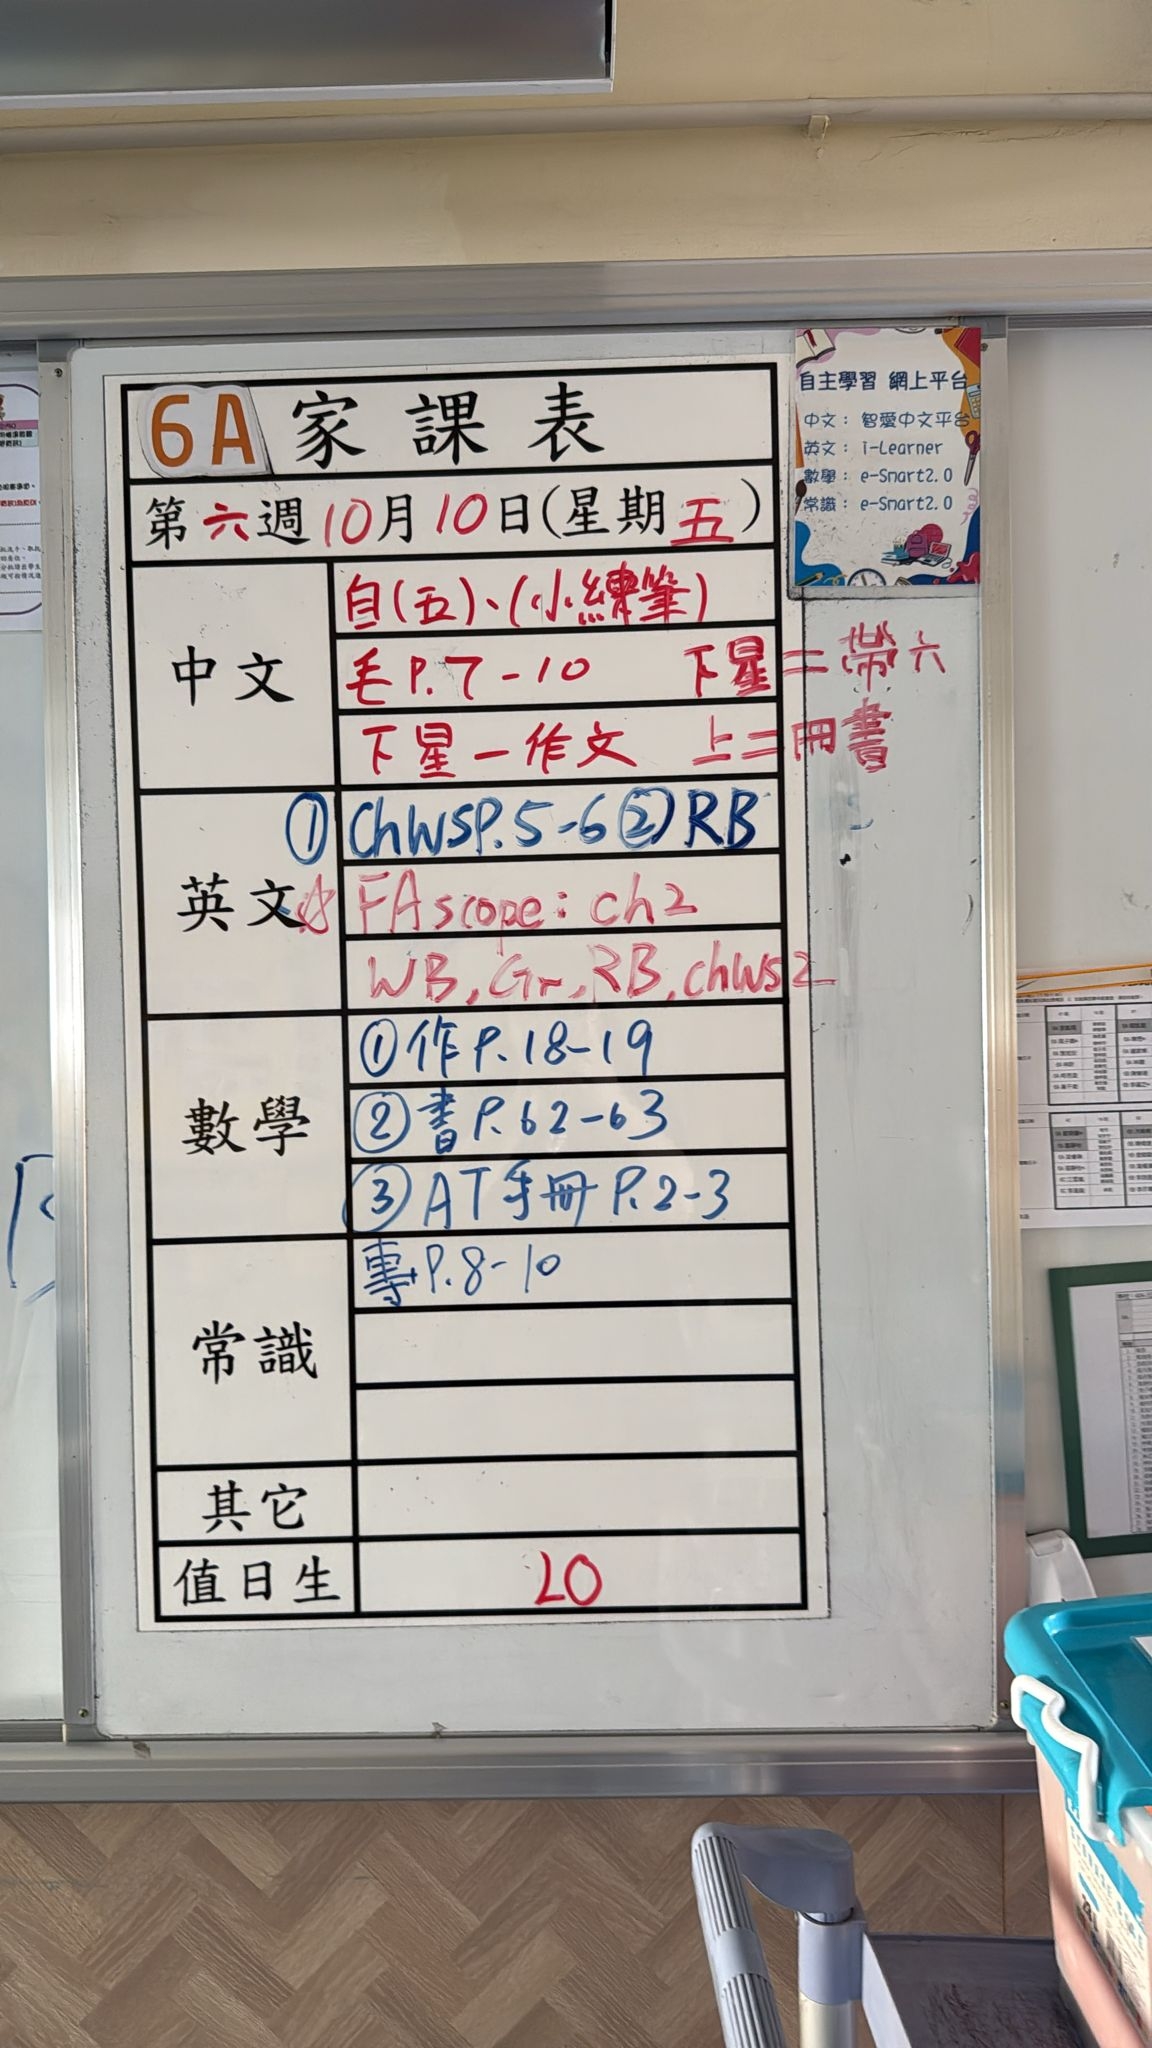 6A 家課表
第六週10月10日(星期五)
中文
自(五)、(小練筆)
毛P.7-10 下星二帶六
下星一作文 上二冊書
英文
① ChWSP.5-6 ② RB
☆ FA scope: ch2
WB, Gr, RB, chWS 2
數學
① 作 P.18-19
② 書 P.62-63
③ AT手冊 P.2-3
常識
專 P.8-10
其它
值日生
20
自主學習 網上平台
中文: 智愛中文平台
英文: i-Learner
數學: e-Smart2.0
常識: e-Smart2.0